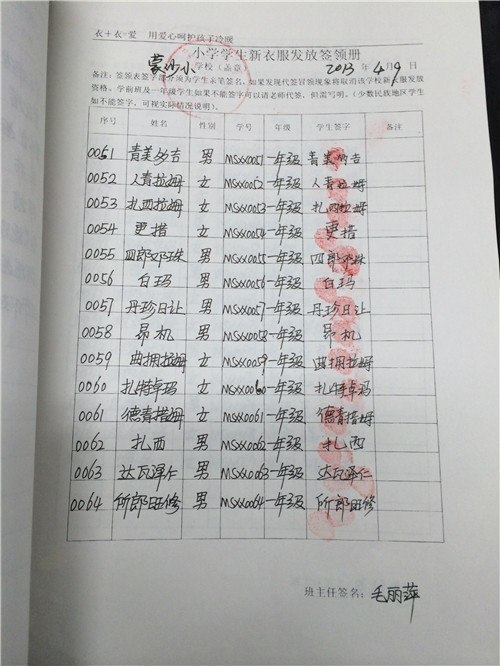 衣+衣=爱 用爱心呵护孩子冷暖
小学学生新衣服发放签领册
学校(盖章) 2013年4月9日
备注:签领表签字部分须为学生亲笔签名,如果发现代签冒领现象将取消该学校新衣服发放
资格,学前班及一年级学生如果不能签字可以请老师代签,但需写明。(少数民族地区学生
如不能签字,可视实际情况说明)。
序号 姓名 性别 学号 年级 学生签字 备注
0051 青美多吉 男 MSXX0051 一年级 青美多吉
0052 人青拉姆 女 MSXX0052 一年级 人青拉姆
0053 扎西拉姆 女 MSXX0053 一年级 扎西拉姆
0054 更措 女 MSXX0054 一年级 更措
0055 四郎邓珠 男 MSXX0055 一年级 四郎邓珠
0056 白玛 男 MSXX0056 一年级 白玛
0057 丹珍日让 男 MSXX0057 一年级 丹珍日让
0058 昂机 男 MSXX0058 一年级 昂机
0059 曲拥拉姆 女 MSXX0059 一年级 曲拥拉姆
0060 扎特卓玛 女 MSXX0060 一年级 扎特卓玛
0061 德青措姆 女 MSXX0061 一年级 德青措姆
0062 扎西 男 MSXX0062 一年级 扎西
0063 达瓦泽仁 男 MSXX0063 一年级 达瓦泽仁
0064 所郎旺修 男 MSXX0064 一年级 所郎旺修
班主任签名: 毛丽萍